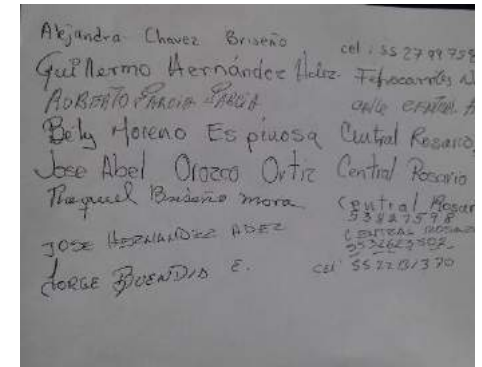 Alejandra Chavez Briseño cel: 55 2799759
Guillermo Hernández Hdez. Ferrocarriles N
ROBERTO GARCIA GARCIA
Bety Moreno Espinosa Central Rosario,
Jose Abel Orozco Ortiz Central Rosario
Raquel Briseño mora Central Rosar
53827598
JOSE HERNANDEZ
JORGE BUENDIA E. cel 5522131370